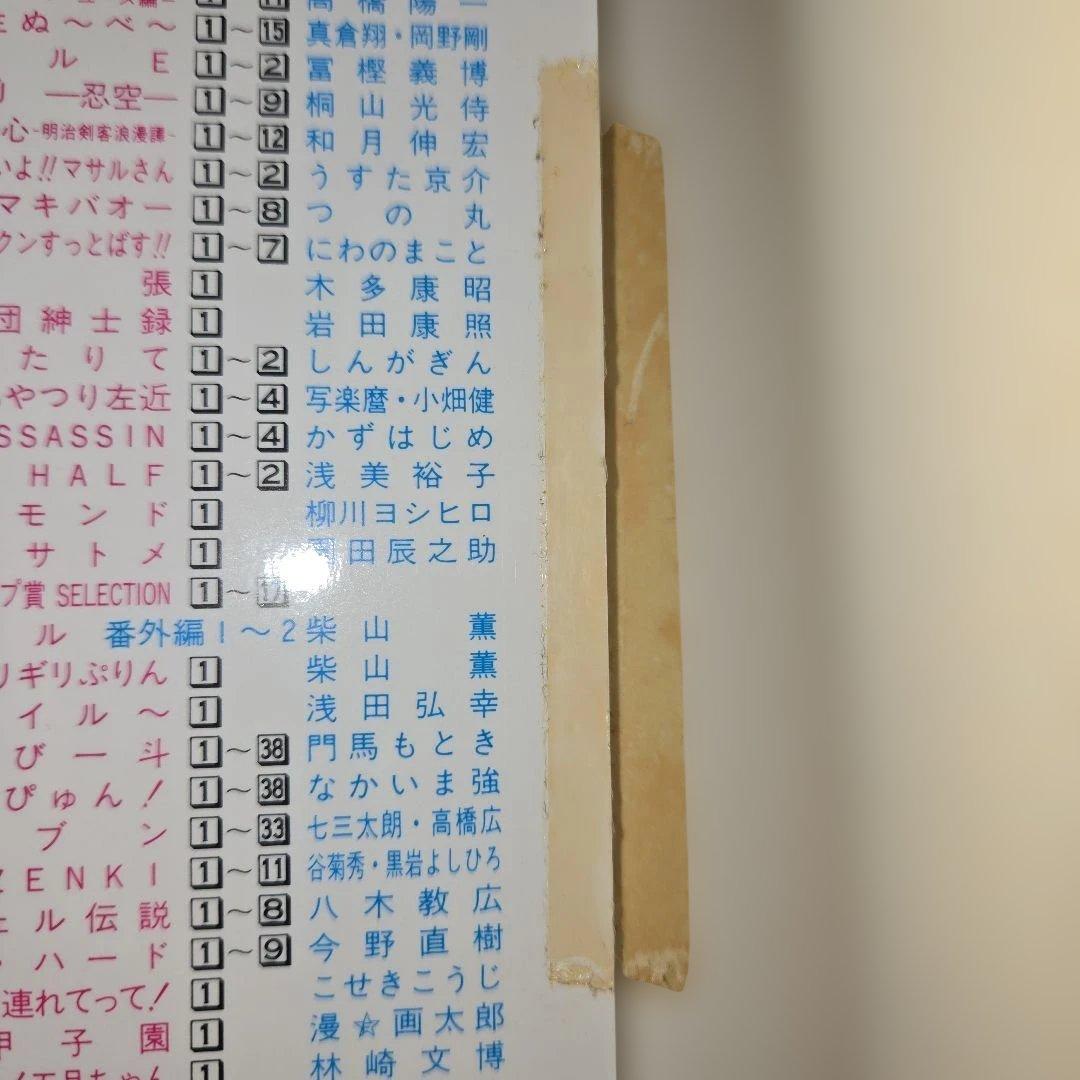 高橋陽一
ぬ〜べ〜 1〜15 真倉翔・岡野剛
ル E 1〜2 冨樫義博
―忍空― 1〜9 桐山光侍
心-明治剣客浪漫譚- 1〜12 和月伸宏
いよ!!マサルさん 1〜2 うすた京介
マキバオー 1〜8 つの丸
クンすっとばす!! 1〜7 にわのまこと
張 1 木多康昭
団紳士録 1 岩田康照
たりて 1〜2 しんがぎん
やつり左近 1〜4 写楽麿・小畑健
SSASSIN 1〜4 かずはじめ
HALF 1〜2 浅美裕子
モンド 1 柳川ヨシヒロ
サトメ 1 田辰之助
プ賞 SELECTION 1〜17
ル 番外編1〜2 柴山薫
リギリぷりん 1 柴山薫
イル〜 1 浅田弘幸
び一斗 1〜38 門馬もとき
ぴゅん! 1〜38 なかいま強
ブン 1〜33 七三太朗・高橋広
ZENKI 1〜11 谷菊秀・黒岩よしひろ
ェル伝説 1〜8 八木教広
・ハード 1〜9 今野直樹
連れてって! 1 こせきこうじ
甲子園 1 漫☆画太郎
1 林崎文博